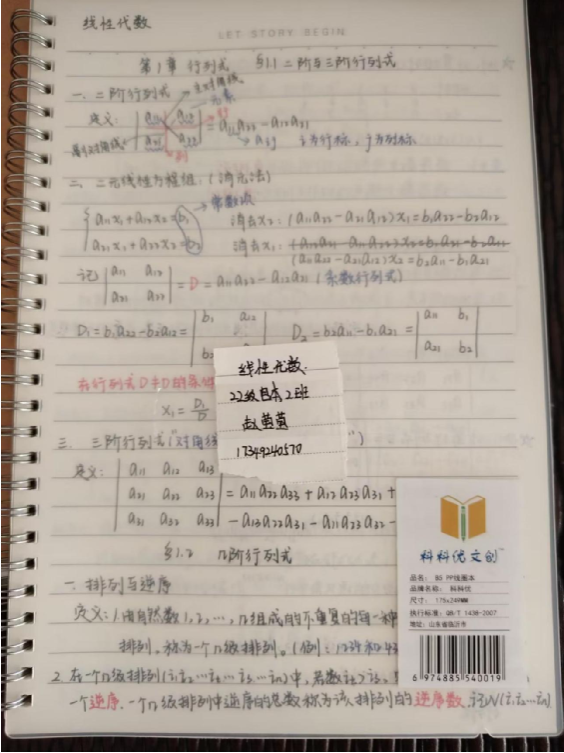 线性代数
LET STORY BEGIN
第1章 行列式 §1.1 二阶与三阶行列式
一、二阶行列式
主对角线
元素
定义: | a11 a12 | = a11a22 - a12a21
| a21 a22 | aij i为行标, j为列标
二、二元线性方程组:(消元法)
常数项
{ a11x1 + a12x2 = b1 消去x2: (a11a22 - a21a12)x1 = b1a22 - b2a12
a21x1 + a22x2 = b2 消去x1:
(a11a22 - a21a12)x2 = b2a11 - b1a21
记 | a11 a12 | = D = a11a22 - a12a21 (系数行列式)
| a21 a22 |
D1 = b1a22 - b2a12 = | b1 a12 | D2 = b2a11 - b1a21 = | a11 b1 |
| b2 | a21 b2 |
线性代数
22级日本2班
赵茵茵
17349240570
x1 = D1/D
三、三阶行列式("对角线 ")
定义: | a11 a12 a13 |
| a21 a22 a23 | = a11a22a33 + a12a23a31 +
| a31 a32 a33 | - a13a22a31 - a11a23a32 -
§1.2 n阶行列式
一、排列与逆序
定义: 1.由自然数1,2,…,n组成的不重复的每一种
排列,称为一个n级排列。(例:1234和43
2. 在一个n级排列(i1i2…it…is…in)中,若数it>is,
一个逆序.一个n级排列中逆序的总数称为该排列的逆序数,记N(i1i2…in)
科科优文创
品名: B5 PP线圈本
品牌名称: 科科优
尺寸: 175x249MM
执行标准: QB/T 1438-2007
地址: 山东省临沂市
6 974885 540019